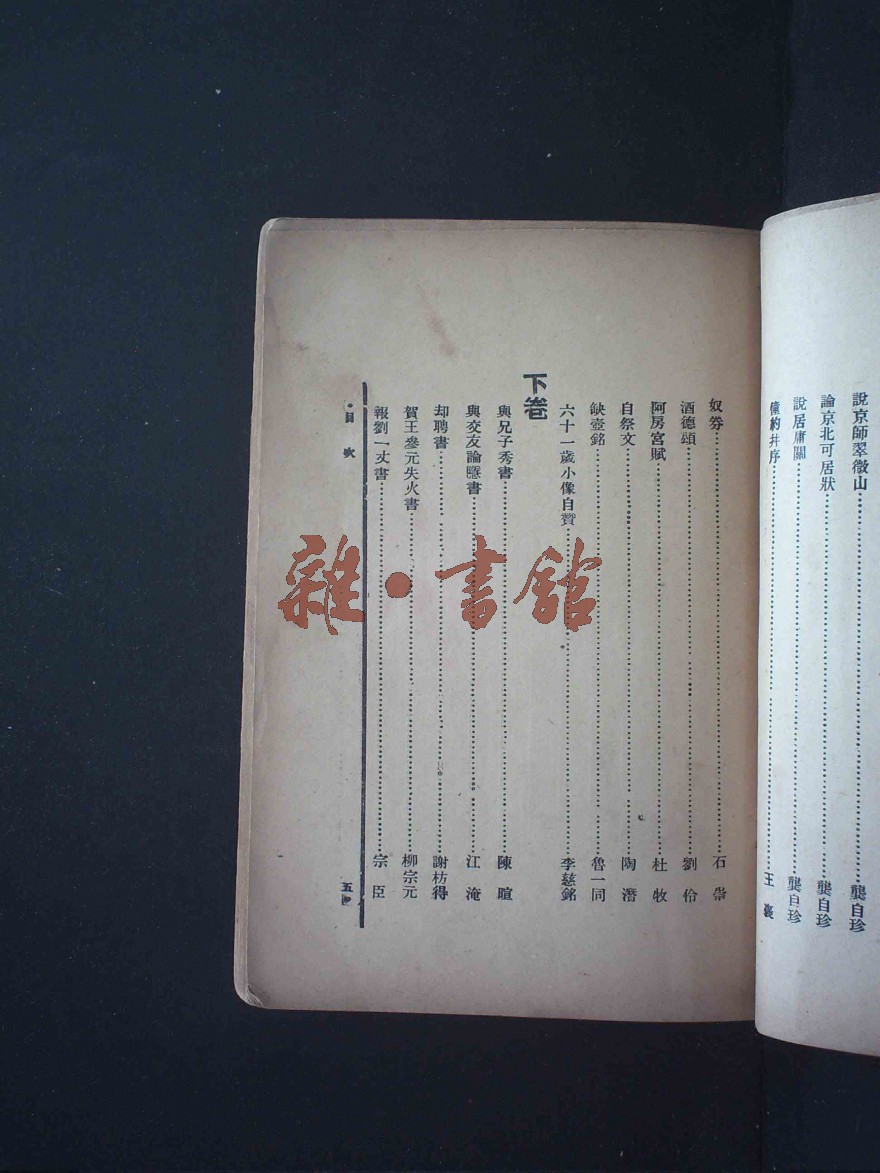 說京師翠微山……龔自珍
論京北可居狀……龔自珍
說居庸關……龔自珍
僮約幷序……王褒
奴券……石崇
酒德頌……劉伶
阿房宮賦……杜牧
自祭文……陶潛
缺壺銘……魯一同
六十一歲小像自贊……李慈銘
下卷
與兄子秀書……陳暄
與交友論隱書……江淹
却聘書……謝枋得
賀王參元失火書……柳宗元
報劉一丈書……宗臣
目次
五
雜·書館